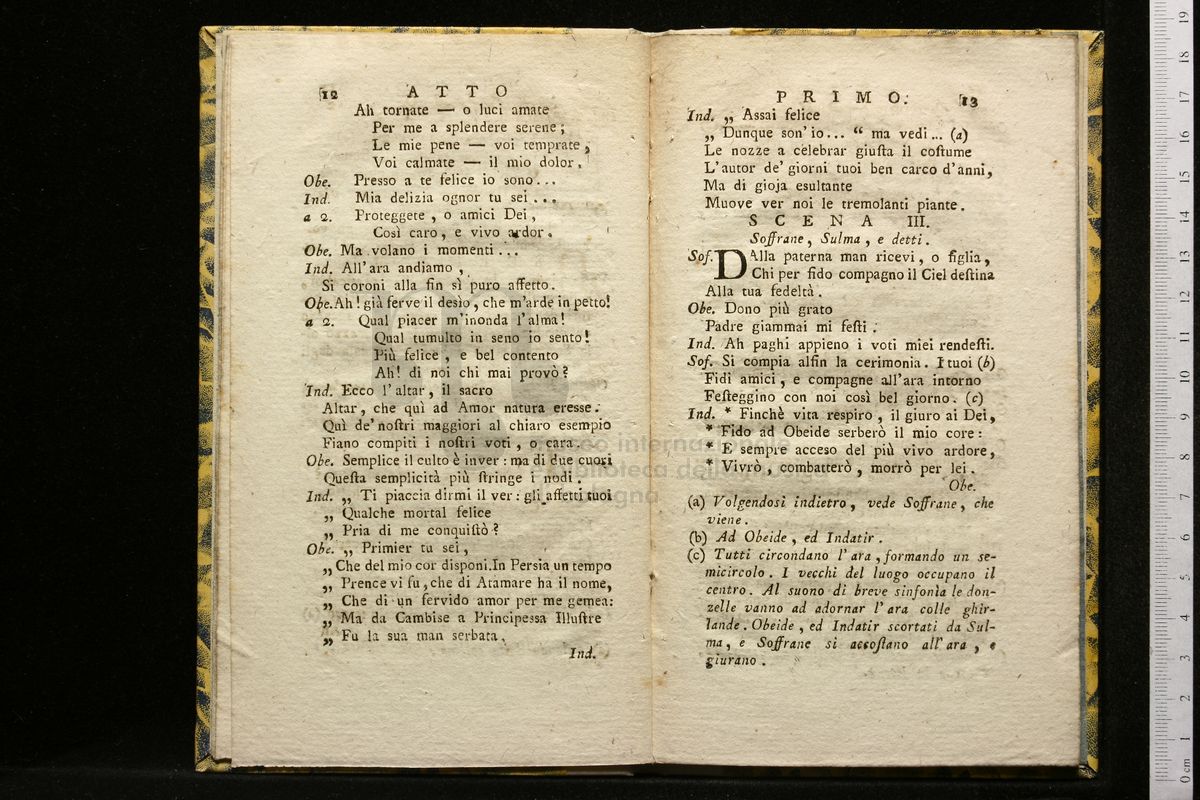 12 ATTO
Ah tornate — o luci amate
Per me a splendere serene;
Le mie pene — voi temprate,
Voi calmate — il mio dolor.
Obe. Presso a te felice io sono...
Ind. Mia delizia ognor tu sei...
a 2. Proteggete, o amici Dei,
Così caro, e vivo ardor.
Obe. Ma volano i momenti...
Ind. All'ara andiamo,
Si coroni alla fin sì puro affetto.
Obe. Ah! già ferve il desìo, che m'arde in petto!
a 2. Qual piacer m'inonda l'alma!
Qual tumulto in seno io sento!
Più felice, e bel contento
Ah! di noi chi mai provò?
Ind. Ecco l'altar, il sacro
Altar, che quì ad Amor natura eresse.
Quì de' noſtri maggiori al chiaro esempio
Fiano compiti i noſtri voti, o cara.
Obe. Semplice il culto è inver: ma di due cuori
Queſta semplicità più ſtringe i nodi.
Ind. „ Ti piaccia dirmi il ver: gli affetti tuoi
„ Qualche mortal felice
„ Pria di me conquiſtò?
Obe. „ Primier tu sei,
„ Che del mio cor disponi. In Persia un tempo
„ Prence vi fu, che di Atamare ha il nome,
„ Che di un fervido amor per me gemea:
„ Ma da Cambise a Principessa Illuſtre
„ Fu la sua man serbata.
Ind.
PRIMO. 13
Ind. „ Assai felice
„ Dunque son' io... “ ma vedi... (a)
Le nozze a celebrar giuſta il coſtume
L'autor de' giorni tuoi ben carco d'anni,
Ma di gioja esultante
Muove ver noi le tremolanti piante.
SCENA III.
Soffrane, Sulma, e detti.
Sof. DAlla paterna man ricevi, o figlia,
Chi per fido compagno il Ciel deſtina
Alla tua fedeltà.
Obe. Dono più grato
Padre giammai mi feſti.
Ind. Ah paghi appieno i voti miei rendeſti.
Sof. Si compia alfin la cerimonia. I tuoi (b)
Fidi amici, e compagne all'ara intorno
Feſteggino con noi così bel giorno. (c)
Ind. * Finchè vita respiro, il giuro ai Dei,
* Fido ad Obeide serberò il mio core:
* E sempre acceso del più vivo ardore,
* Vivrò, combatterò, morrò per lei.
Obe.
(a) Volgendosi indietro, vede Soffrane, che
viene.
(b) Ad Obeide, ed Indatir.
(c) Tutti circondano l'ara, formando un se-
micircolo. I vecchi del luogo occupano il
centro. Al suono di breve sinfonìa le don-
zelle vanno ad adornar l'ara colle ghir-
lande. Obeide, ed Indatir scortati da Sul-
ma, e Soffrane si accoſtano all'ara, e
giurano.
museo internazionale
e biblioteca della musica
di bologna
0 cm 1 2 3 4 5 6 7 8 9 10 11 12 13 14 15 16 17 18 19